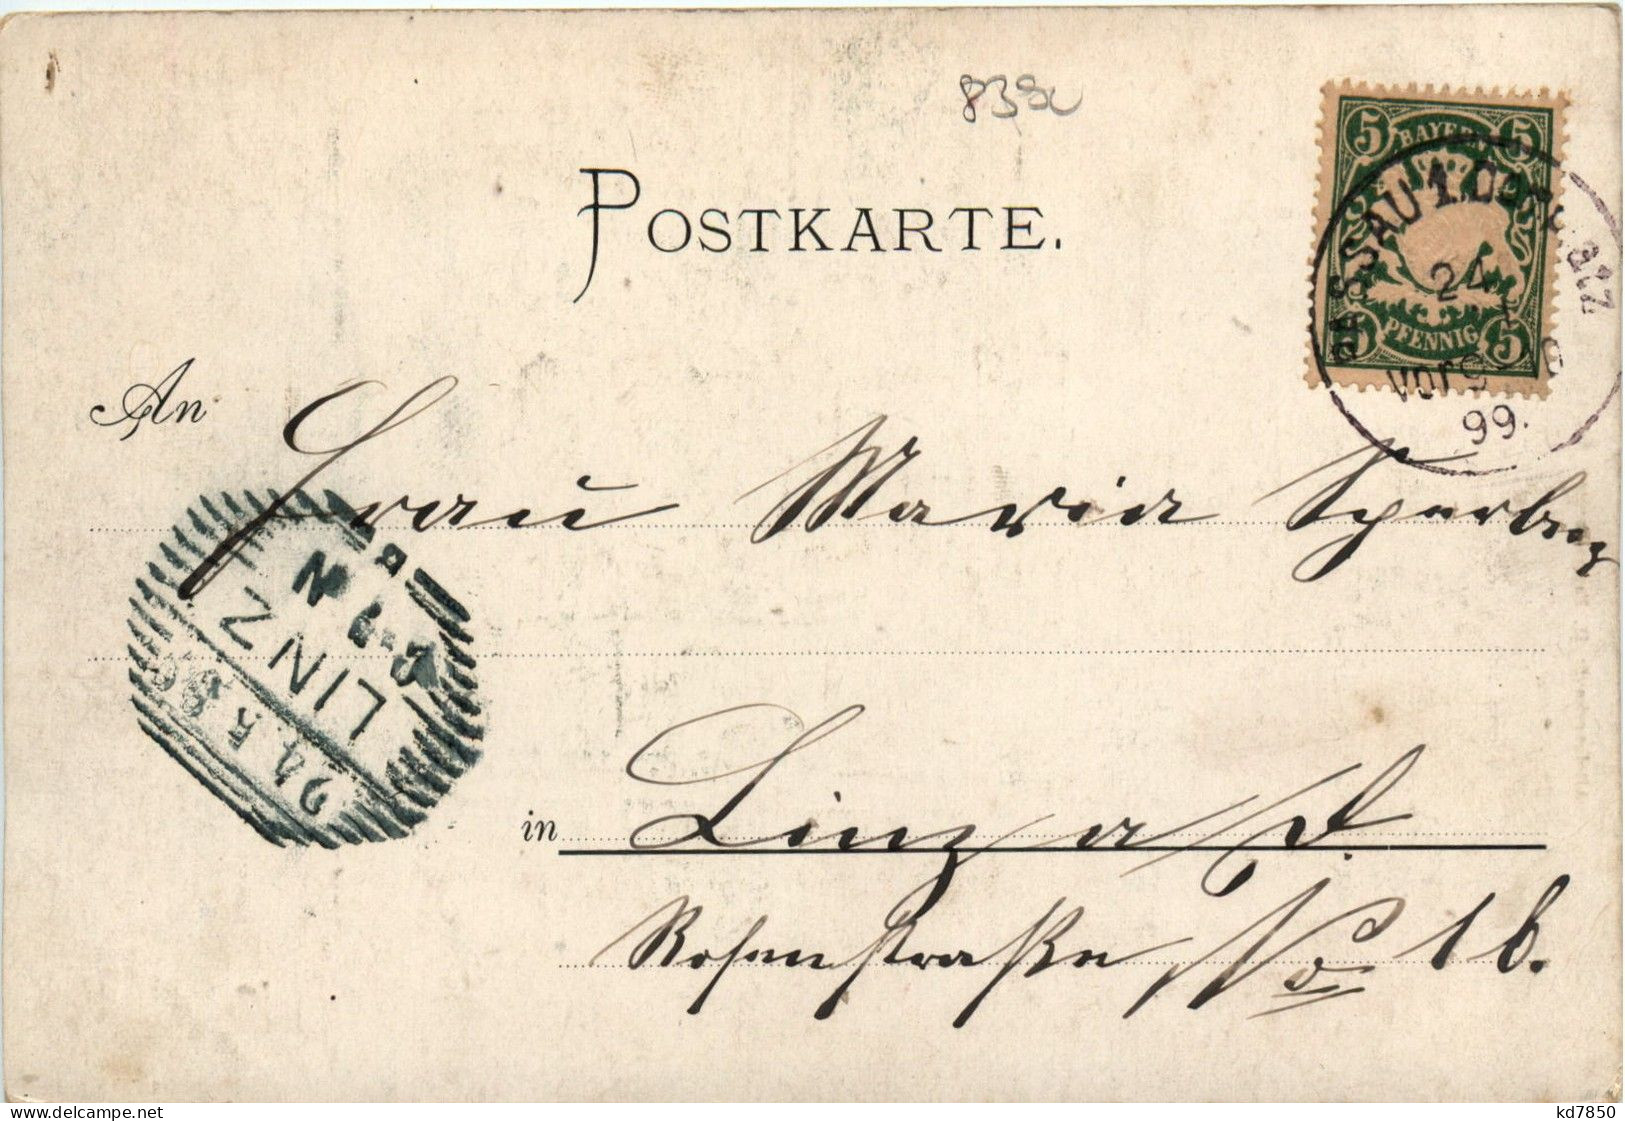 838u
POSTKARTE.
5 BAYERN 5
5 PFENNIG 5
PASSAU 1. Dom
24
Vorg
99.
An Frau Maria Sperber
LINZ
24
in Linz a/D.
Rosenstraße No 16.
www.delcampe.net
kd7850